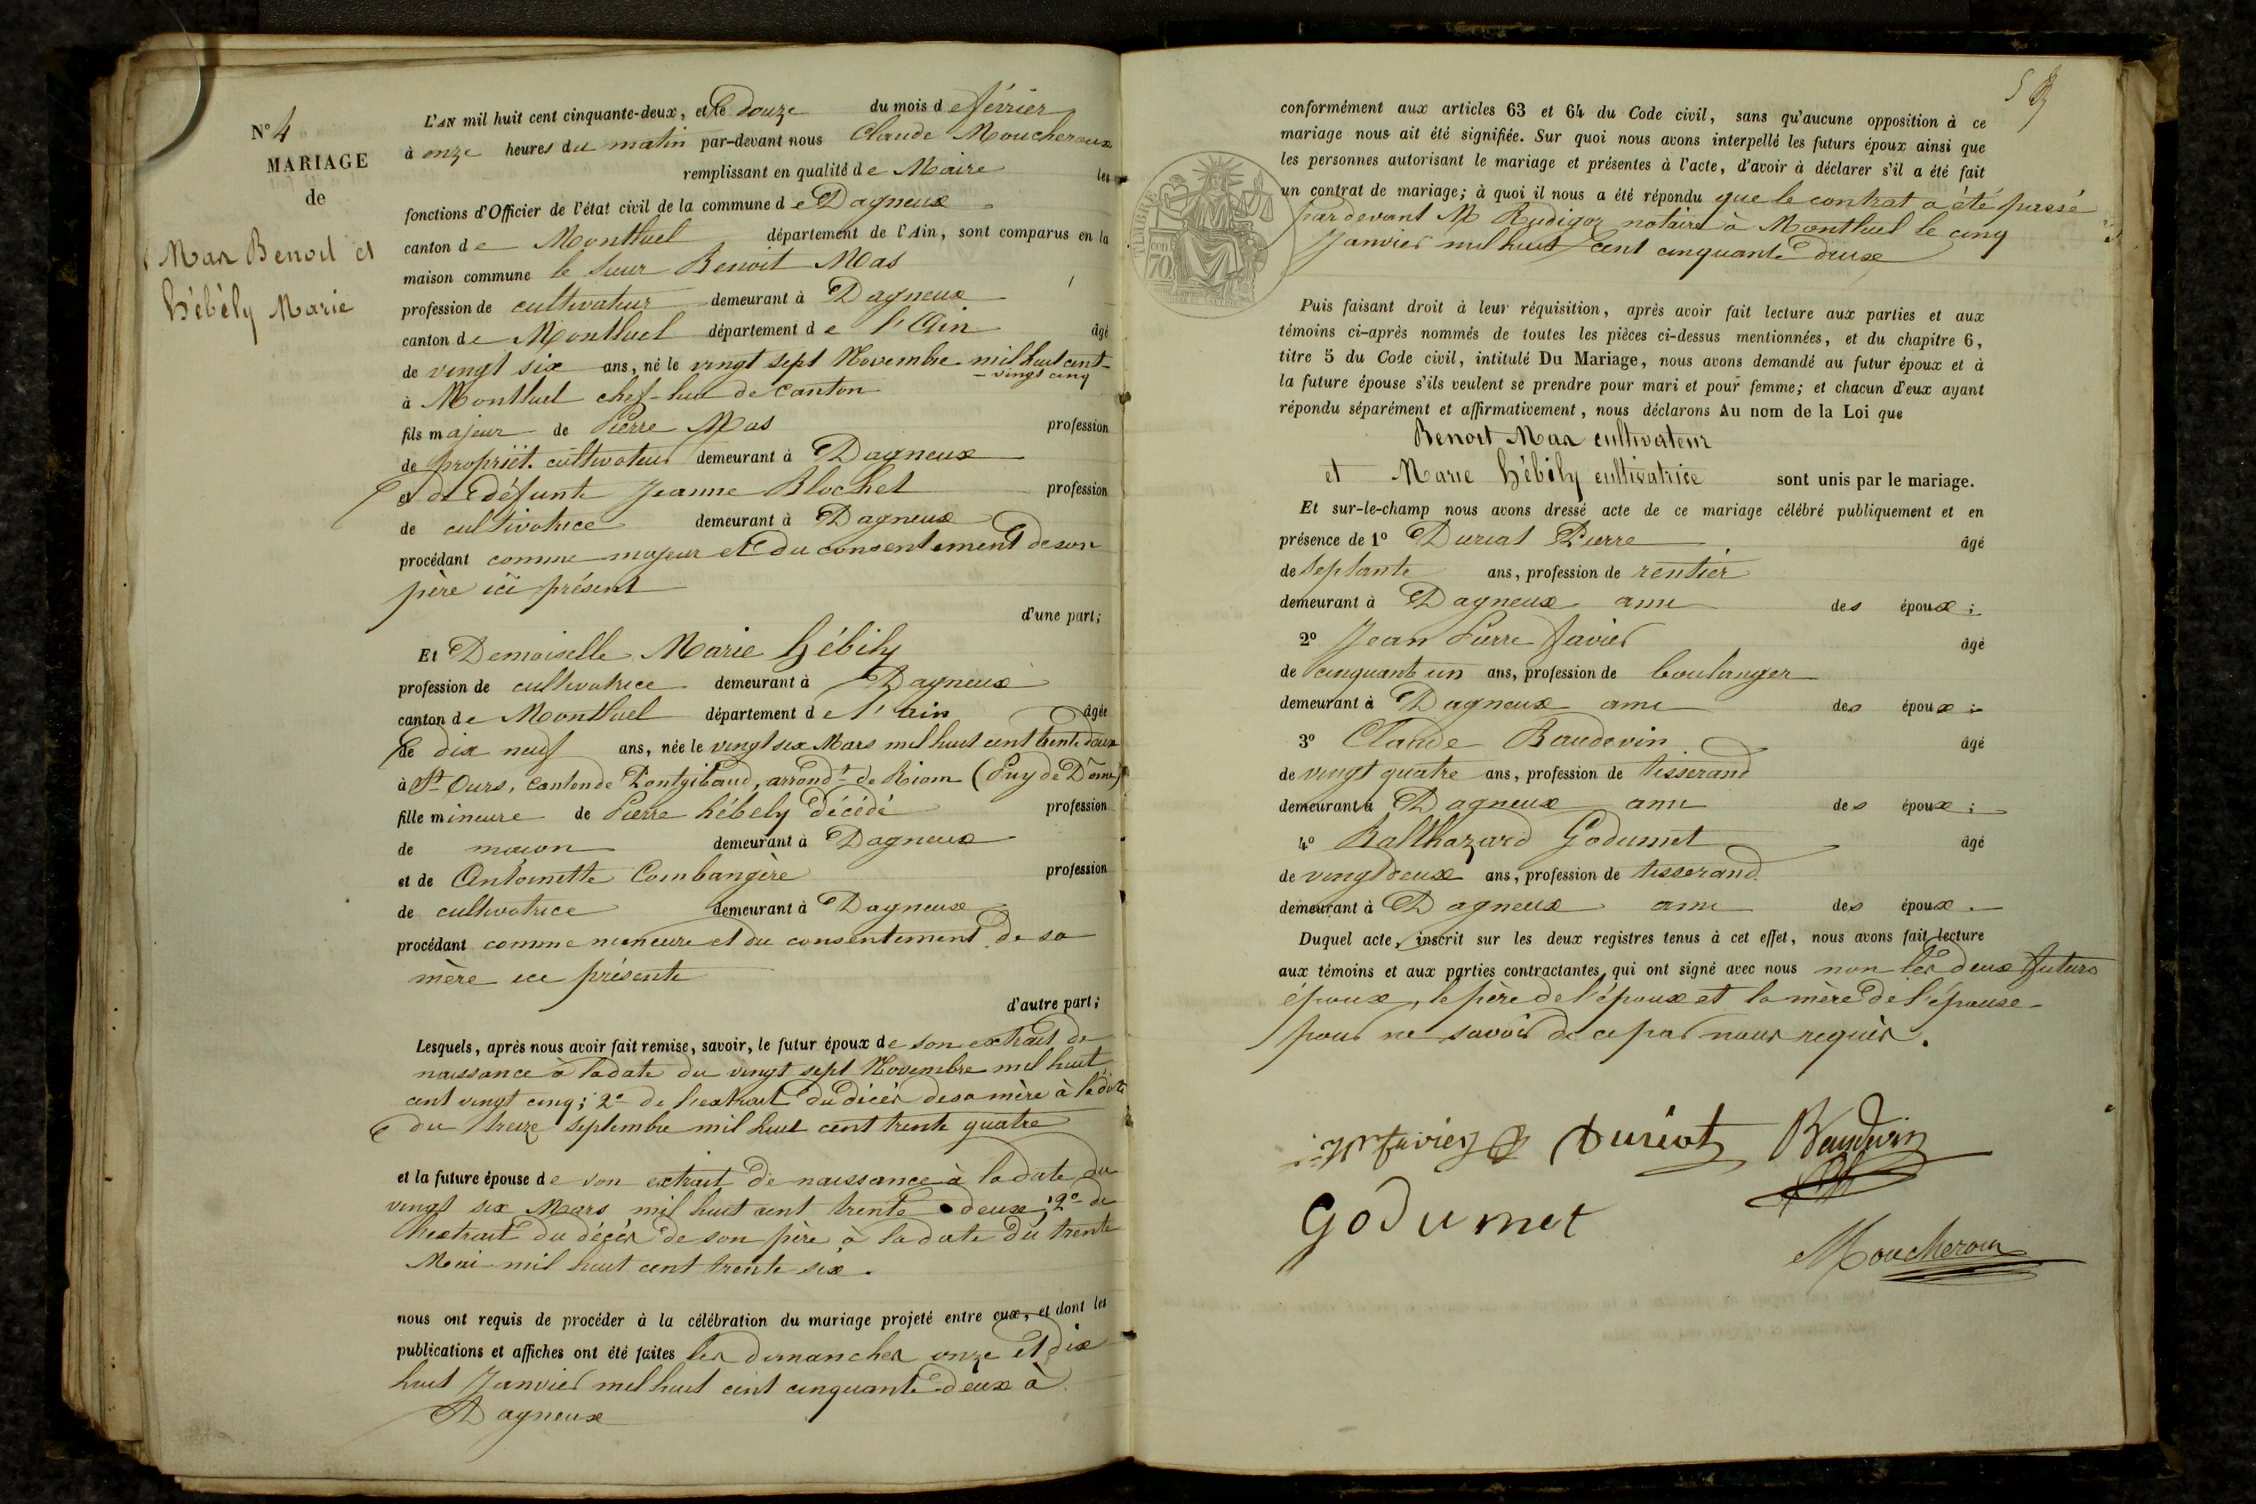 N° 4
MARIAGE
de
Mas Benoit et
hébély Marie
L'AN mil huit cent cinquante-deux, et le douze du mois de février
à onze heures du matin par-devant nous Claude Moucheroux
remplissant en qualité de Maire les
fonctions d'Officier de l'état civil de la commune de Dagneux
canton de Montluel département de l'Ain, sont comparus en la
maison commune le sieur Benoit Mas
profession de cultivateur demeurant à Dagneux
canton de Montluel département de l'Ain âgé
de vingt six ans, né le vingt sept Novembre mil huit cent
vingt cinq
à Montluel chef-lieu de canton
fils majeur de Pierre Mas profession
de propriét. cultivateur demeurant à Dagneux
et de défunte Jeanne Blochet profession
de cultivatrice demeurant à Dagneux
procédant comme majeur et du consentement de son
père ici présent
d'une part;
Et Demoiselle Marie hébély
profession de cultivatrice demeurant à Dagneux
canton de Montluel département de l'ain âgée
de dix neuf ans, née le vingt six Mars mil huit cent trente deux
à St Ours, canton de Pontgibaud, arrondt de Riom (Puy de Dôme)
fille mineure de Pierre hébély décédé profession
de maçon demeurant à Dagneux
et de Antoinette Combangère profession
de cultivatrice demeurant à Dagneux
procédant comme mineure et du consentement de sa
mère ici présente
d'autre part;
Lesquels, après nous avoir fait remise, savoir, le futur époux de son extrait de
naissance à la date du vingt sept Novembre mil huit
cent vingt cinq; 2° de l'extrait du décès de sa mère à la date
du treize septembre mil huit cent trente quatre
et la future épouse de son extrait de naissance à la date du
vingt six Mars mil huit cent trente deux; 2° de
l'extrait du décès de son père à la date du trente
Mai mil huit cent trente six.
nous ont requis de procéder à la célébration du mariage projeté entre eux, et dont les
publications et affiches ont été faites les dimanches onze et dix
huit Janvier mil huit cent cinquante deux à
Dagneux
conformément aux articles 63 et 64 du Code civil, sans qu'aucune opposition à ce
mariage nous ait été signifiée. Sur quoi nous avons interpellé les futurs époux ainsi que
les personnes autorisant le mariage et présentes à l'acte, d'avoir à déclarer s'il a été fait
un contrat de mariage; à quoi il nous a été répondu que le contrat a été passé
pardevant M Rudigoz notaire à Montluel le cinq
Janvier mil huit cent cinquante deux
TIMBRE
70
Puis faisant droit à leur réquisition, après avoir fait lecture aux parties et aux
témoins ci-après nommés de toutes les pièces ci-dessus mentionnées, et du chapitre 6,
titre 5 du Code civil, intitulé Du Mariage, nous avons demandé au futur époux et à
la future épouse s'ils veulent se prendre pour mari et pour femme; et chacun d'eux ayant
répondu séparément et affirmativement, nous déclarons Au nom de la Loi que
Benoit Mas cultivateur
et Marie hébély cultivatrice sont unis par le mariage.
Et sur-le-champ nous avons dressé acte de ce mariage célébré publiquement et en
présence de 1° Duriat Pierre âgé
de septante ans, profession de rentier
demeurant à Dagneux ami des époux;
2° Jean Pierre Javier âgé
de cinquante un ans, profession de boulanger
demeurant à Dagneux ami des époux;
3° Claude Baudovin âgé
de vingt quatre ans, profession de tisserand
demeurant à Dagneux ami des époux;
4° Balthazard Godumet âgé
de vingt deux ans, profession de tisserand
demeurant à Dagneux ami des époux.
Duquel acte, inscrit sur les deux registres tenus à cet effet, nous avons fait lecture
aux témoins et aux parties contractantes, qui ont signé avec nous non les deux futurs
époux, le père de l'époux et la mère de l'épouse
pour ne savoir de ce par nous requis.
Duriat Bauduin
Godumet
Moucheroux